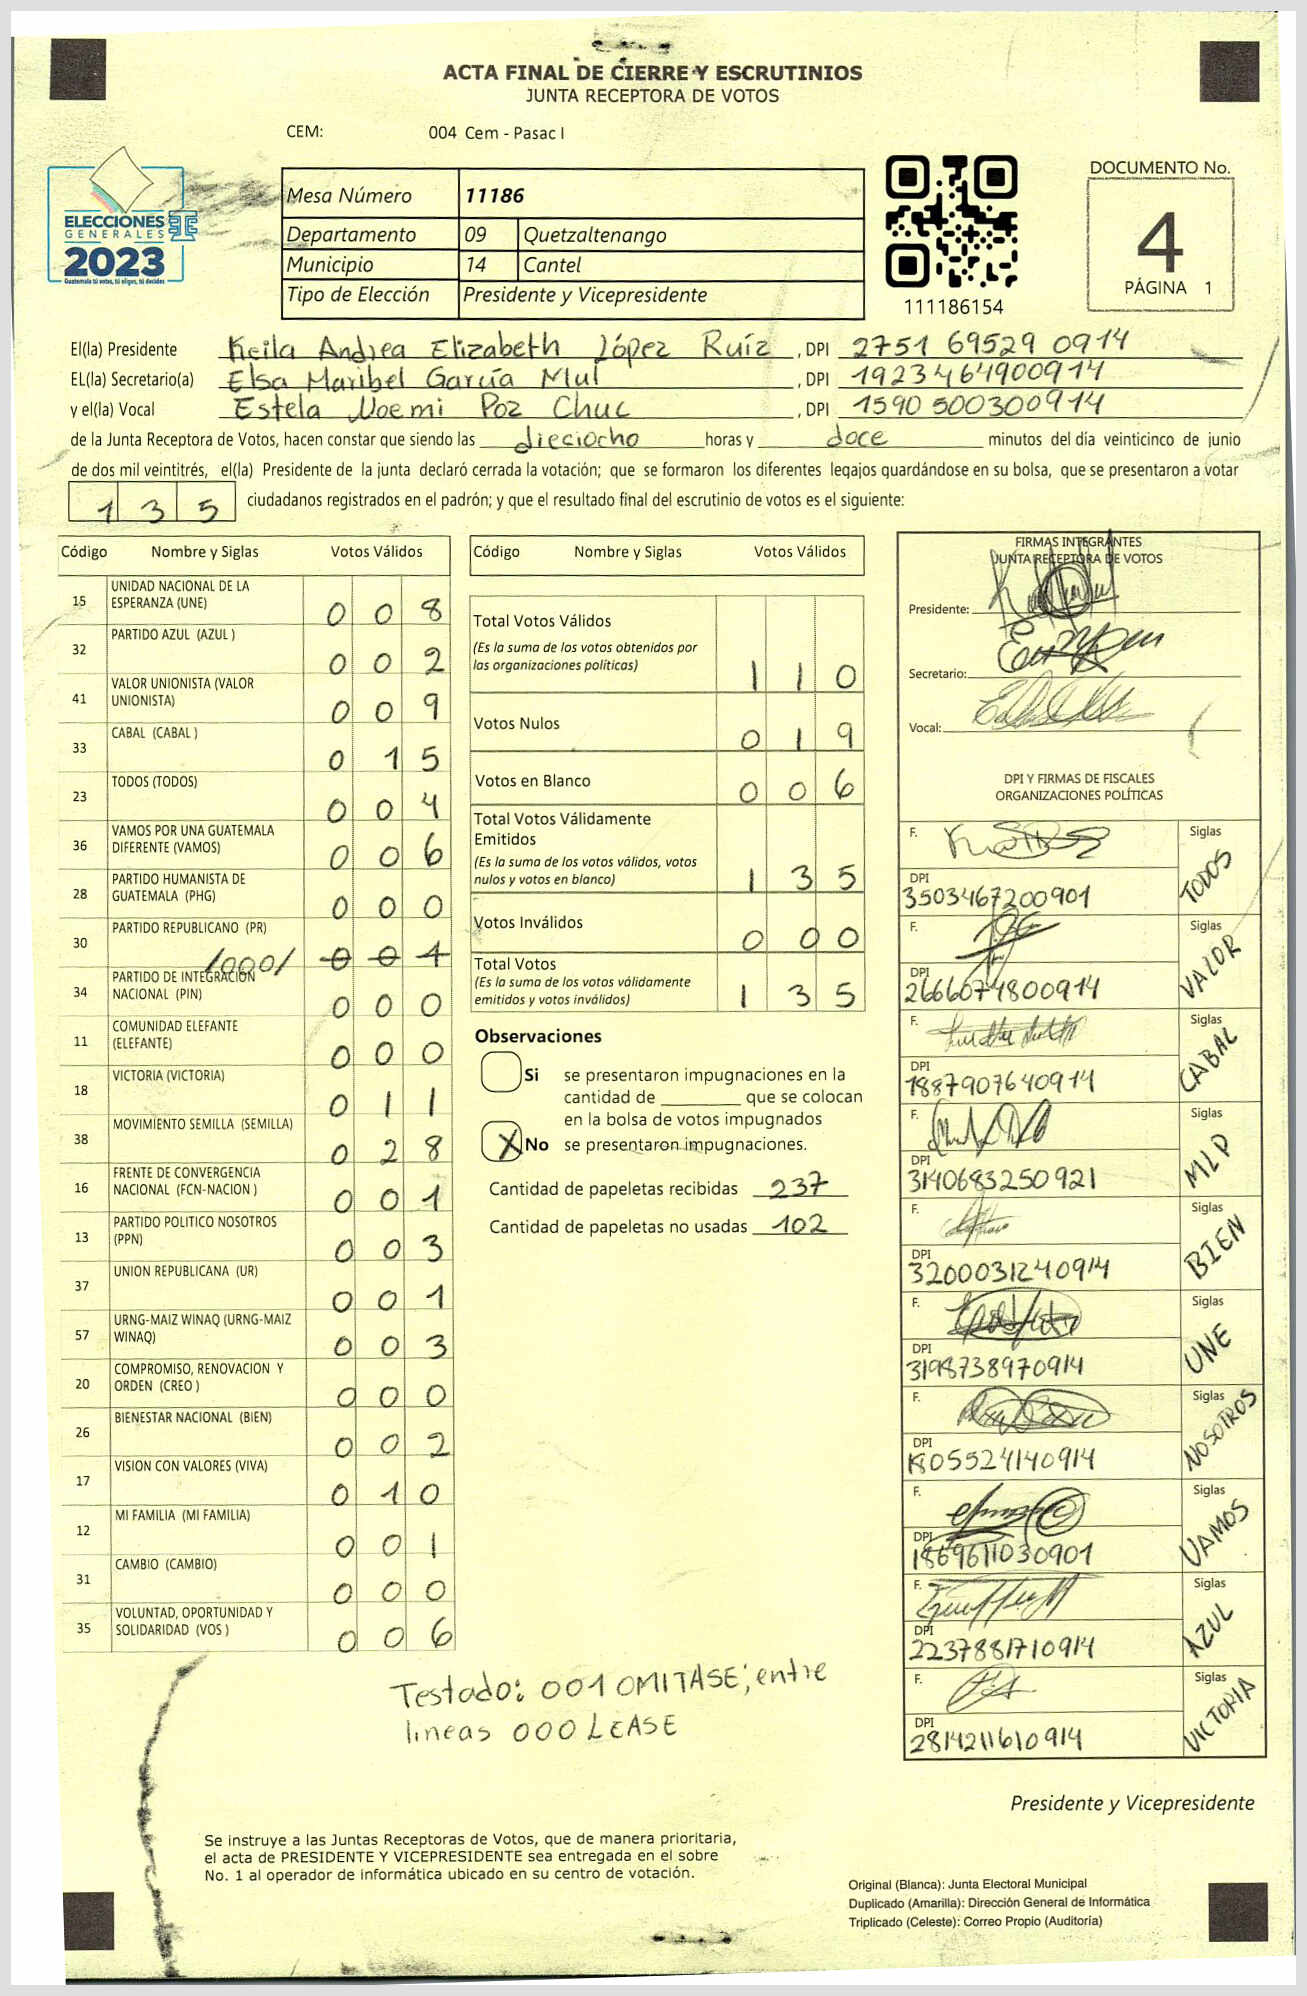 ACTA FINAL DE CIERRE Y ESCRUTINIOS
JUNTA RECEPTORA DE VOTOS
CEM: 004 Cem - Pasac I
ELECCIONES
GENERALES
2023
Guatemala tú votas, tú eliges, tú decides
Mesa Número 11186
Departamento 09 Quetzaltenango
Municipio 14 Cantel
Tipo de Elección Presidente y Vicepresidente
111186154
DOCUMENTO No.
4
PÁGINA 1
El(la) Presidente Keila Andrea Elizabeth López Ruíz , DPI 2751 69529 0914
EL(la) Secretario(a) Elsa Maribel García Mul , DPI 1923464900914
y el(la) Vocal Estela Noemi Poz Chuc , DPI 1590500300914
de la Junta Receptora de Votos, hacen constar que siendo las dieciocho horas y doce minutos del día veinticinco de junio
de dos mil veintitrés, el(la) Presidente de la junta declaró cerrada la votación; que se formaron los diferentes legajos guardándose en su bolsa, que se presentaron a votar
135 ciudadanos registrados en el padrón; y que el resultado final del escrutinio de votos es el siguiente:
Código Nombre y Siglas Votos Válidos
15 UNIDAD NACIONAL DE LA
ESPERANZA (UNE) 008
32 PARTIDO AZUL (AZUL ) 002
41 VALOR UNIONISTA (VALOR
UNIONISTA) 009
33 CABAL (CABAL ) 015
23 TODOS (TODOS) 004
36 VAMOS POR UNA GUATEMALA
DIFERENTE (VAMOS) 006
28 PARTIDO HUMANISTA DE
GUATEMALA (PHG) 000
30 PARTIDO REPUBLICANO (PR)
/000/ 001
34 PARTIDO DE INTEGRACION
NACIONAL (PIN) 000
11 COMUNIDAD ELEFANTE
(ELEFANTE) 000
18 VICTORIA (VICTORIA) 011
38 MOVIMIENTO SEMILLA (SEMILLA) 028
16 FRENTE DE CONVERGENCIA
NACIONAL (FCN-NACION ) 001
13 PARTIDO POLITICO NOSOTROS
(PPN) 003
37 UNION REPUBLICANA (UR) 001
57 URNG-MAIZ WINAQ (URNG-MAIZ
WINAQ) 003
20 COMPROMISO, RENOVACION Y
ORDEN (CREO ) 000
26 BIENESTAR NACIONAL (BIEN) 002
17 VISION CON VALORES (VIVA) 010
12 MI FAMILIA (MI FAMILIA) 001
31 CAMBIO (CAMBIO) 000
35 VOLUNTAD, OPORTUNIDAD Y
SOLIDARIDAD (VOS ) 006
Código Nombre y Siglas Votos Válidos
Total Votos Válidos
(Es la suma de los votos obtenidos por
las organizaciones políticas) 110
Votos Nulos 019
Votos en Blanco 006
Total Votos Válidamente
Emitidos
(Es la suma de los votos válidos, votos
nulos y votos en blanco) 135
Votos Inválidos 000
Total Votos
(Es la suma de los votos válidamente
emitidos y votos inválidos) 135
Observaciones
Si se presentaron impugnaciones en la
cantidad de ________ que se colocan
en la bolsa de votos impugnados
X No se presentaron impugnaciones.
Cantidad de papeletas recibidas 237
Cantidad de papeletas no usadas 102
FIRMAS INTEGRANTES
JUNTA RECEPTORA DE VOTOS
Presidente:
Secretario:
Vocal:
DPI Y FIRMAS DE FISCALES
ORGANIZACIONES POLÍTICAS
F. Siglas
DPI TODOS
3503467200901
F. Siglas
DPI VALOR
2666074800914
F. Siglas
DPI CABAL
1887907640914
F. Siglas
DPI MLP
3140683250921
F. Siglas
DPI BIEN
3200031240914
F. Siglas
DPI UNE
3198738970914
F. Siglas
DPI NOSOTROS
1805524140914
F. Siglas
DPI VAMOS
1869611030901
F. Siglas
DPI AZUL
2237881710914
F. Siglas
DPI VICTORIA
2814211610914
Testado: 001 OMITASE; entre
lineas 000 LEASE
Presidente y Vicepresidente
Se instruye a las Juntas Receptoras de Votos, que de manera prioritaria,
el acta de PRESIDENTE Y VICEPRESIDENTE sea entregada en el sobre
No. 1 al operador de informática ubicado en su centro de votación.
Original (Blanca): Junta Electoral Municipal
Duplicado (Amarilla): Dirección General de Informática
Triplicado (Celeste): Correo Propio (Auditoría)